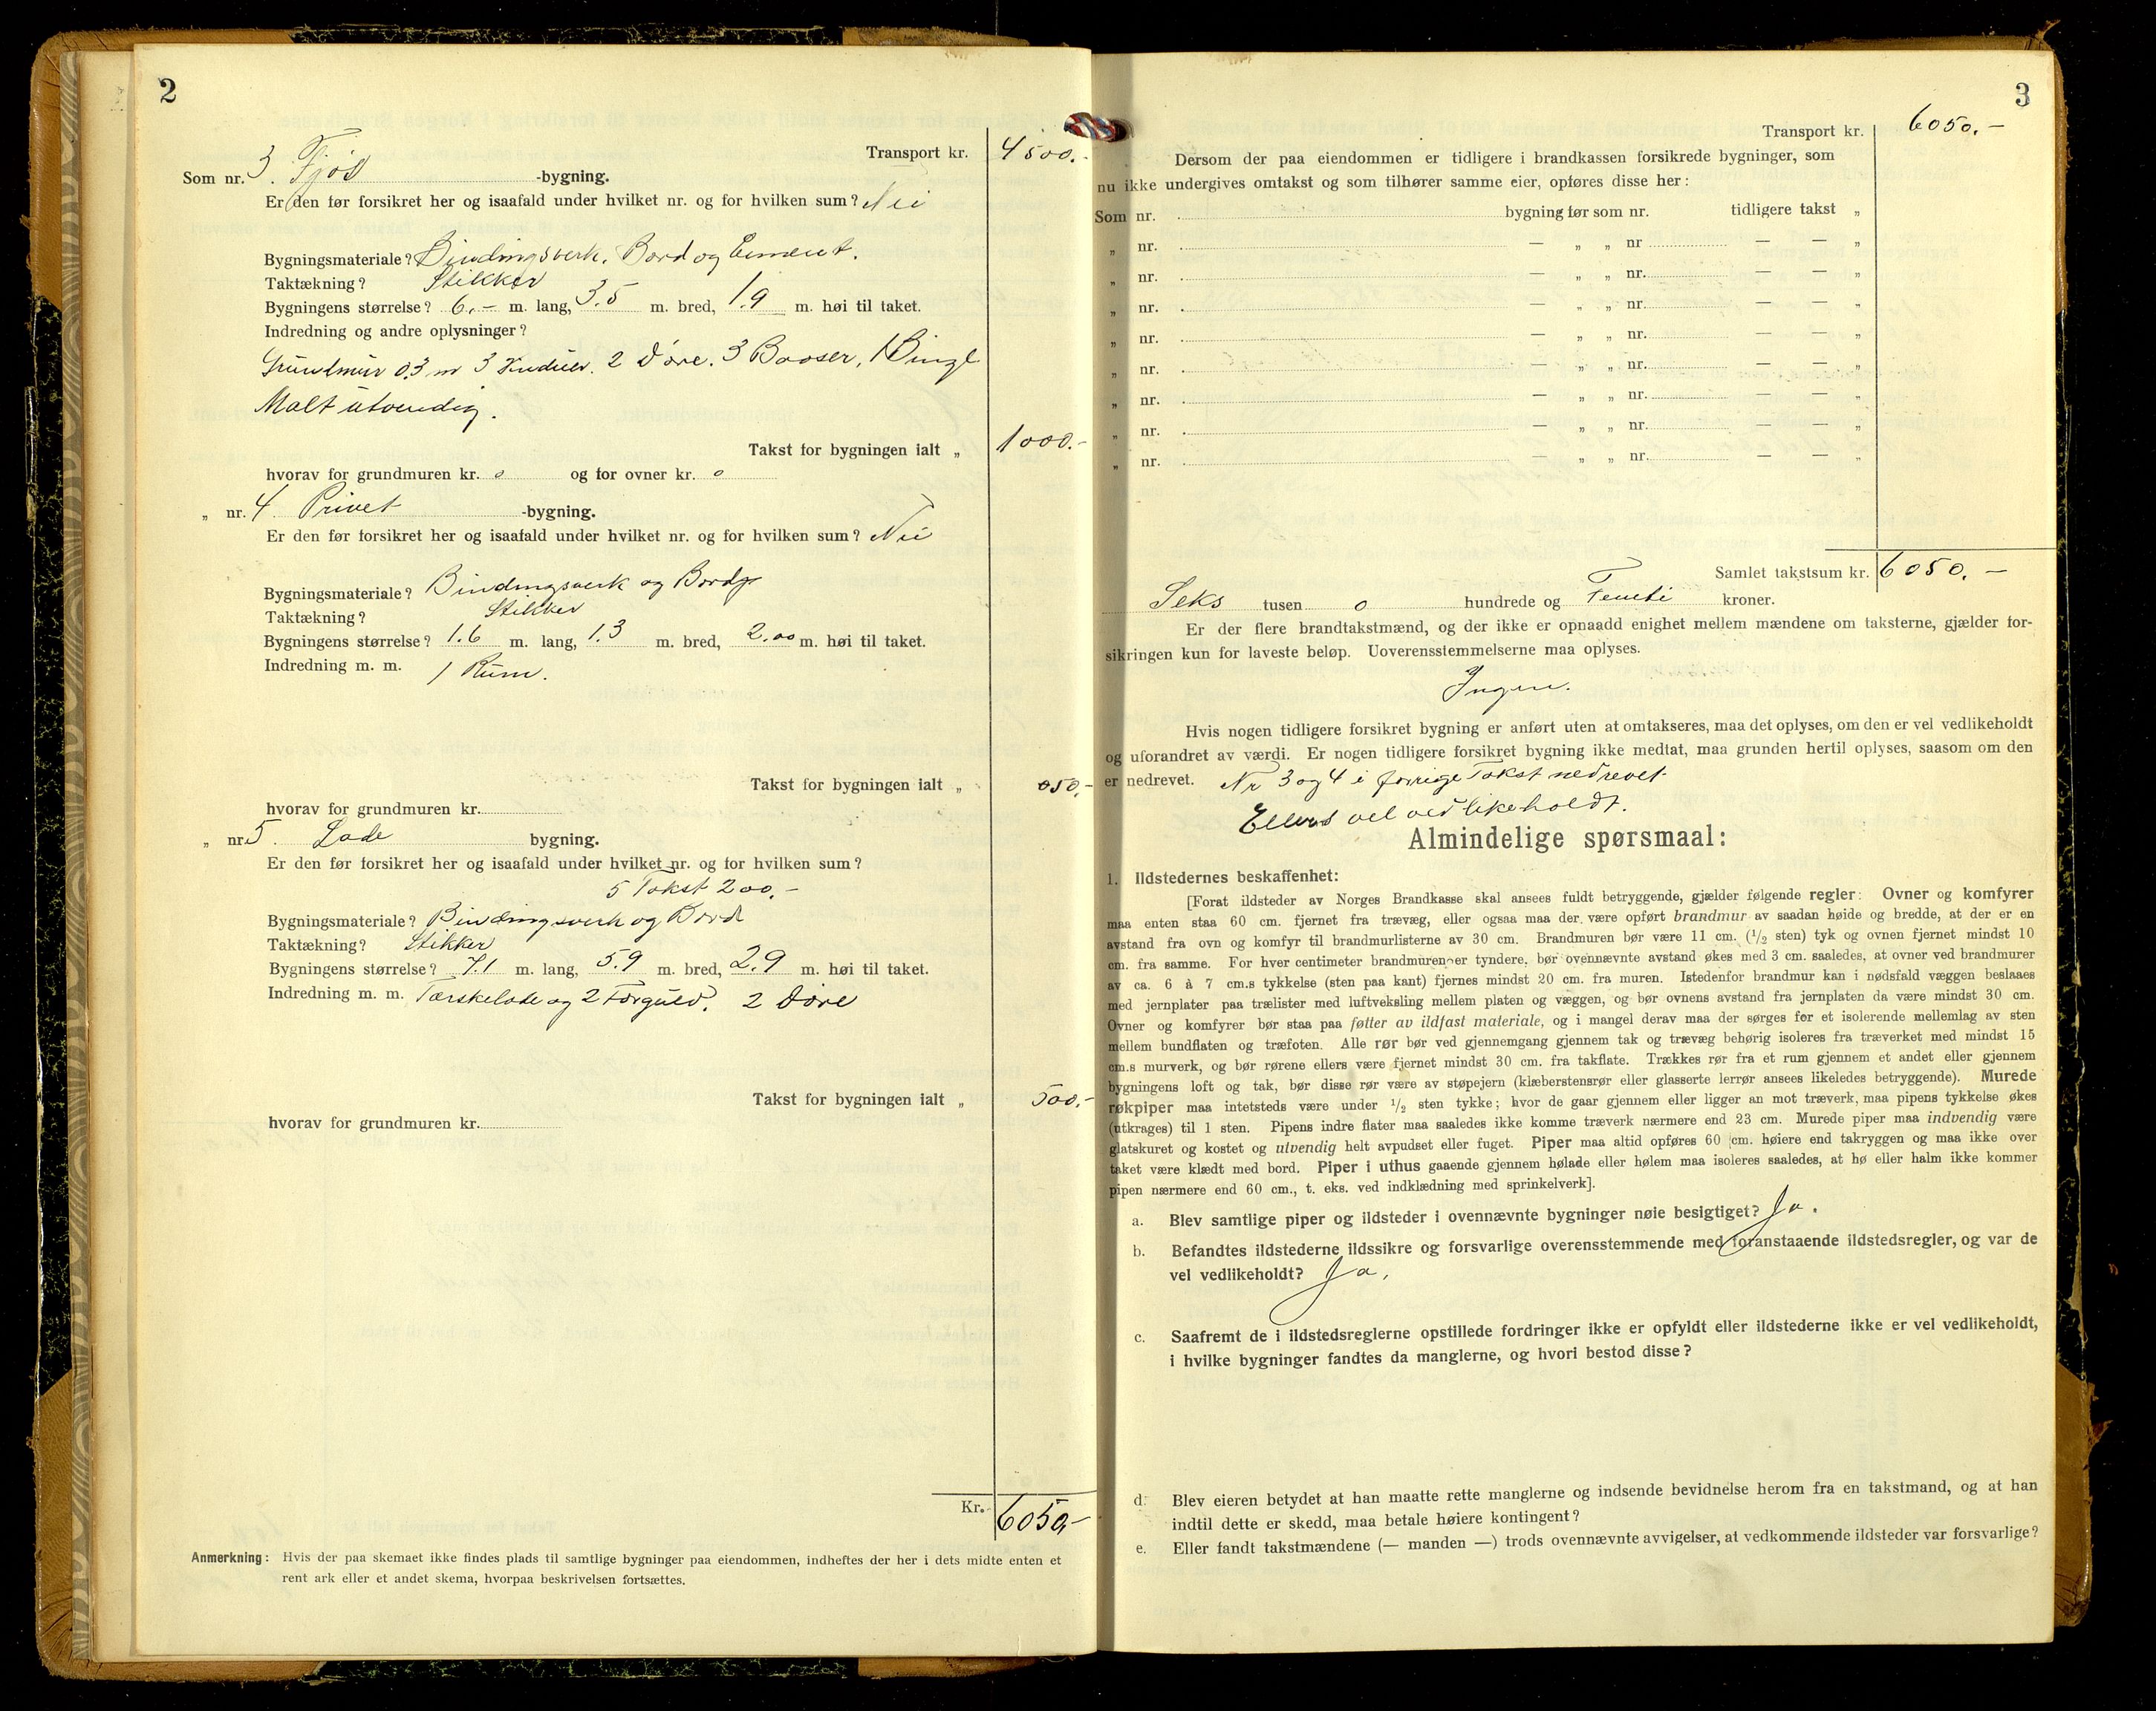 2
Transport kr. 4500.-
Som nr. 3. Fjøs -bygning.
Er den før forsikret her og isaafald under hvilket nr. og for hvilken sum? Nei
Bygningsmateriale? Bindingsverk. Bord og Cement.
Taktækning? Stikker
Bygningens størrelse? 6.- m. lang, 3.5 m. bred, 1.9 m. høi til taket.
Indredning og andre oplysninger?
Grundmur 0.3 m 3 Vinduer. 2 Døre. 3 Baaser, 1 Binge
Malt utvendig.
Takst for bygningen ialt „ 1000.-
hvorav for grundmuren kr. o og for ovner kr. o
„ nr. 4. Privet -bygning.
Er den før forsikret her og isaafald under hvilket nr. og for hvilken sum? Nei
Bygningsmateriale? Bindingsverk og Bord
Taktækning? Stikker
Bygningens størrelse? 1.6 m. lang, 1.3 m. bred, 2.00 m. høi til taket.
Indredning m. m. 1 Rum.
Takst for bygningen ialt „ 050.-
hvorav for grundmuren kr.
„ nr. 5. Lade bygning.
Er den før forsikret her og isaafald under hvilket nr. og for hvilken sum?
5 Takst 200.-
Bygningsmateriale? Bindingsverk og Bord
Taktækning? Stikker
Bygningens størrelse? 7.1 m. lang, 5.9 m. bred, 2.9 m. høi til taket.
Indredning m. m. Tærskelade og 2 2 Døre
Takst for bygningen ialt „ 500.-
hvorav for grundmuren kr.
Kr. 6050,-
Anmerkning: Hvis der paa skemaet ikke findes plads til samtlige bygninger paa eiendommen, indheftes der her i dets midte enten et
rent ark eller et andet skema, hvorpaa beskrivelsen fortsættes.
3
Transport kr. 6050.-
Dersom der paa eiendommen er tidligere i brandkassen forsikrede bygninger, som
nu ikke undergives omtakst og som tilhører samme eier, opføres disse her:
Som nr. bygning før som nr. tidligere takst „
„ nr. — „ „ nr — — „
„ nr. — „ „ nr. — — „
„ nr. — „ „ nr. — — „
„ nr. — „ „ nr. — — „
„ nr. — „ „ nr. — — „
„ nr. — „ „ nr. — — „
„ nr. — „ „ nr. — — „
„ nr. — „ „ nr. — — „
Samlet takstsum kr. 6050.-
Seks tusen o hundrede og Femti kroner.
Er der flere brandtakstmænd, og der ikke er opnaadd enighet mellem mændene om taksterne, gjælder for-
sikringen kun for laveste beløp. Uoverensstemmelserne maa oplyses.
Ingen.
Hvis nogen tidligere forsikret bygning er anført uten at omtakseres, maa det oplyses, om den er vel vedlikeholdt
og uforandret av værdi. Er nogen tidligere forsikret bygning ikke medtat, maa grunden hertil oplyses, saasom om den
er nedrevet. Nr 3 og 4 i forrige Takst nedrevet
Ellers vel vedlikeholdt.
Almindelige spørsmaal:
1. Ildstedernes beskaffenhet:
[Forat ildsteder av Norges Brandkasse skal ansees fuldt betryggende, gjælder følgende regler: Ovner og komfyrer
maa enten staa 60 cm. fjernet fra trævæg, eller ogsaa maa der være opført brandmur av saadan høide og bredde, at der er en
avstand fra ovn og komfyr til brandmurlisterne av 30 cm. Brandmuren bør være 11 cm. (1/2 sten) tyk og ovnen fjernet mindst 10
cm. fra samme. For hver centimeter brandmuren er tyndere, bør ovennævnte avstand økes med 3 cm. saaledes, at ovner ved brandmurer
av ca. 6 à 7 cm.s tykkelse (sten paa kant) fjernes mindst 20 cm. fra muren. Istedenfor brandmur kan i nødsfald væggen beslaaes
med jernplater paa trælister med luftveksling mellem platen og væggen, og bør ovnens avstand fra jernplaten da være mindst 30 cm.
Ovner og komfyrer bør staa paa føtter av ildfast materiale, og i mangel derav maa der sørges for et isolerende mellemlag av sten
mellem bundflaten og træfoten. Alle rør bør ved gjennemgang gjennem tak og trævæg behørig isoleres fra træverket med mindst 15
cm.s murverk, og bør rørene ellers være fjernet mindst 30 cm. fra takflate. Trækkes rør fra et rum gjennem et andet eller gjennem
bygningens loft og tak, bør disse rør være av støpejern (klæberstensrør eller glasserte lerrør ansees likeledes betryggende). Murede
røkpiper maa intetsteds være under 1/2 sten tykke; hvor de gaar gjennem eller ligger an mot træverk, maa pipens tykkelse økes
(utkrages) til 1 sten. Pipens indre flater maa saaledes ikke komme træverk nærmere end 23 cm. Murede piper maa indvendig være
glatskuret og kostet og utvendig helt avpudset eller fuget. Piper maa altid opføres 60 cm. høiere end takryggen og maa ikke over
taket være klædt med bord. Piper i uthus gaaende gjennem hølade eller hølem maa isoleres saaledes, at hø eller halm ikke kommer
pipen nærmere end 60 cm., t. eks. ved indklædning med sprinkelverk].
a. Blev samtlige piper og ildsteder i ovennævnte bygninger nøie besigtiget? Ja.
b. Befandtes ildstederne ildssikre og forsvarlige overensstemmende med foranstaaende ildstedsregler, og var de
vel vedlikeholdt? Ja.
c. Saafremt de i ildstedsreglerne opstillede fordringer ikke er opfyldt eller ildstederne ikke er vel vedlikeholdt,
i hvilke bygninger fandtes da manglerne, og hvori bestod disse?
d. Blev eieren betydet at han maatte rette manglerne og indsende bevidnelse herom fra en takstmand, og at han
indtil dette er skedd, maa betale høiere kontingent?
e. Eller fandt takstmændene (— manden —) trods ovennævnte avvigelser, at vedkommende ildsteder var forsvarlige?